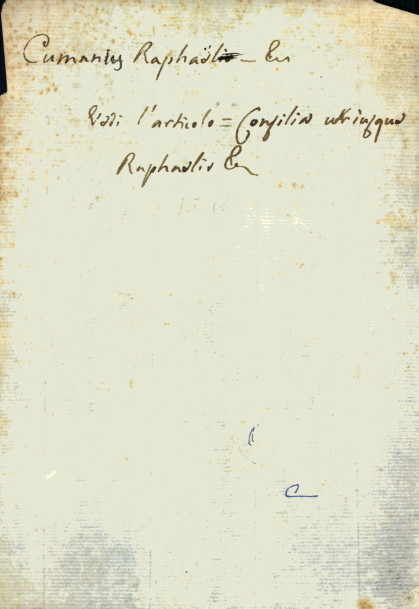 Cumanus Raphaël — &c
Vedi l'articolo = Consilia utriusque
Raphaelis &c
C